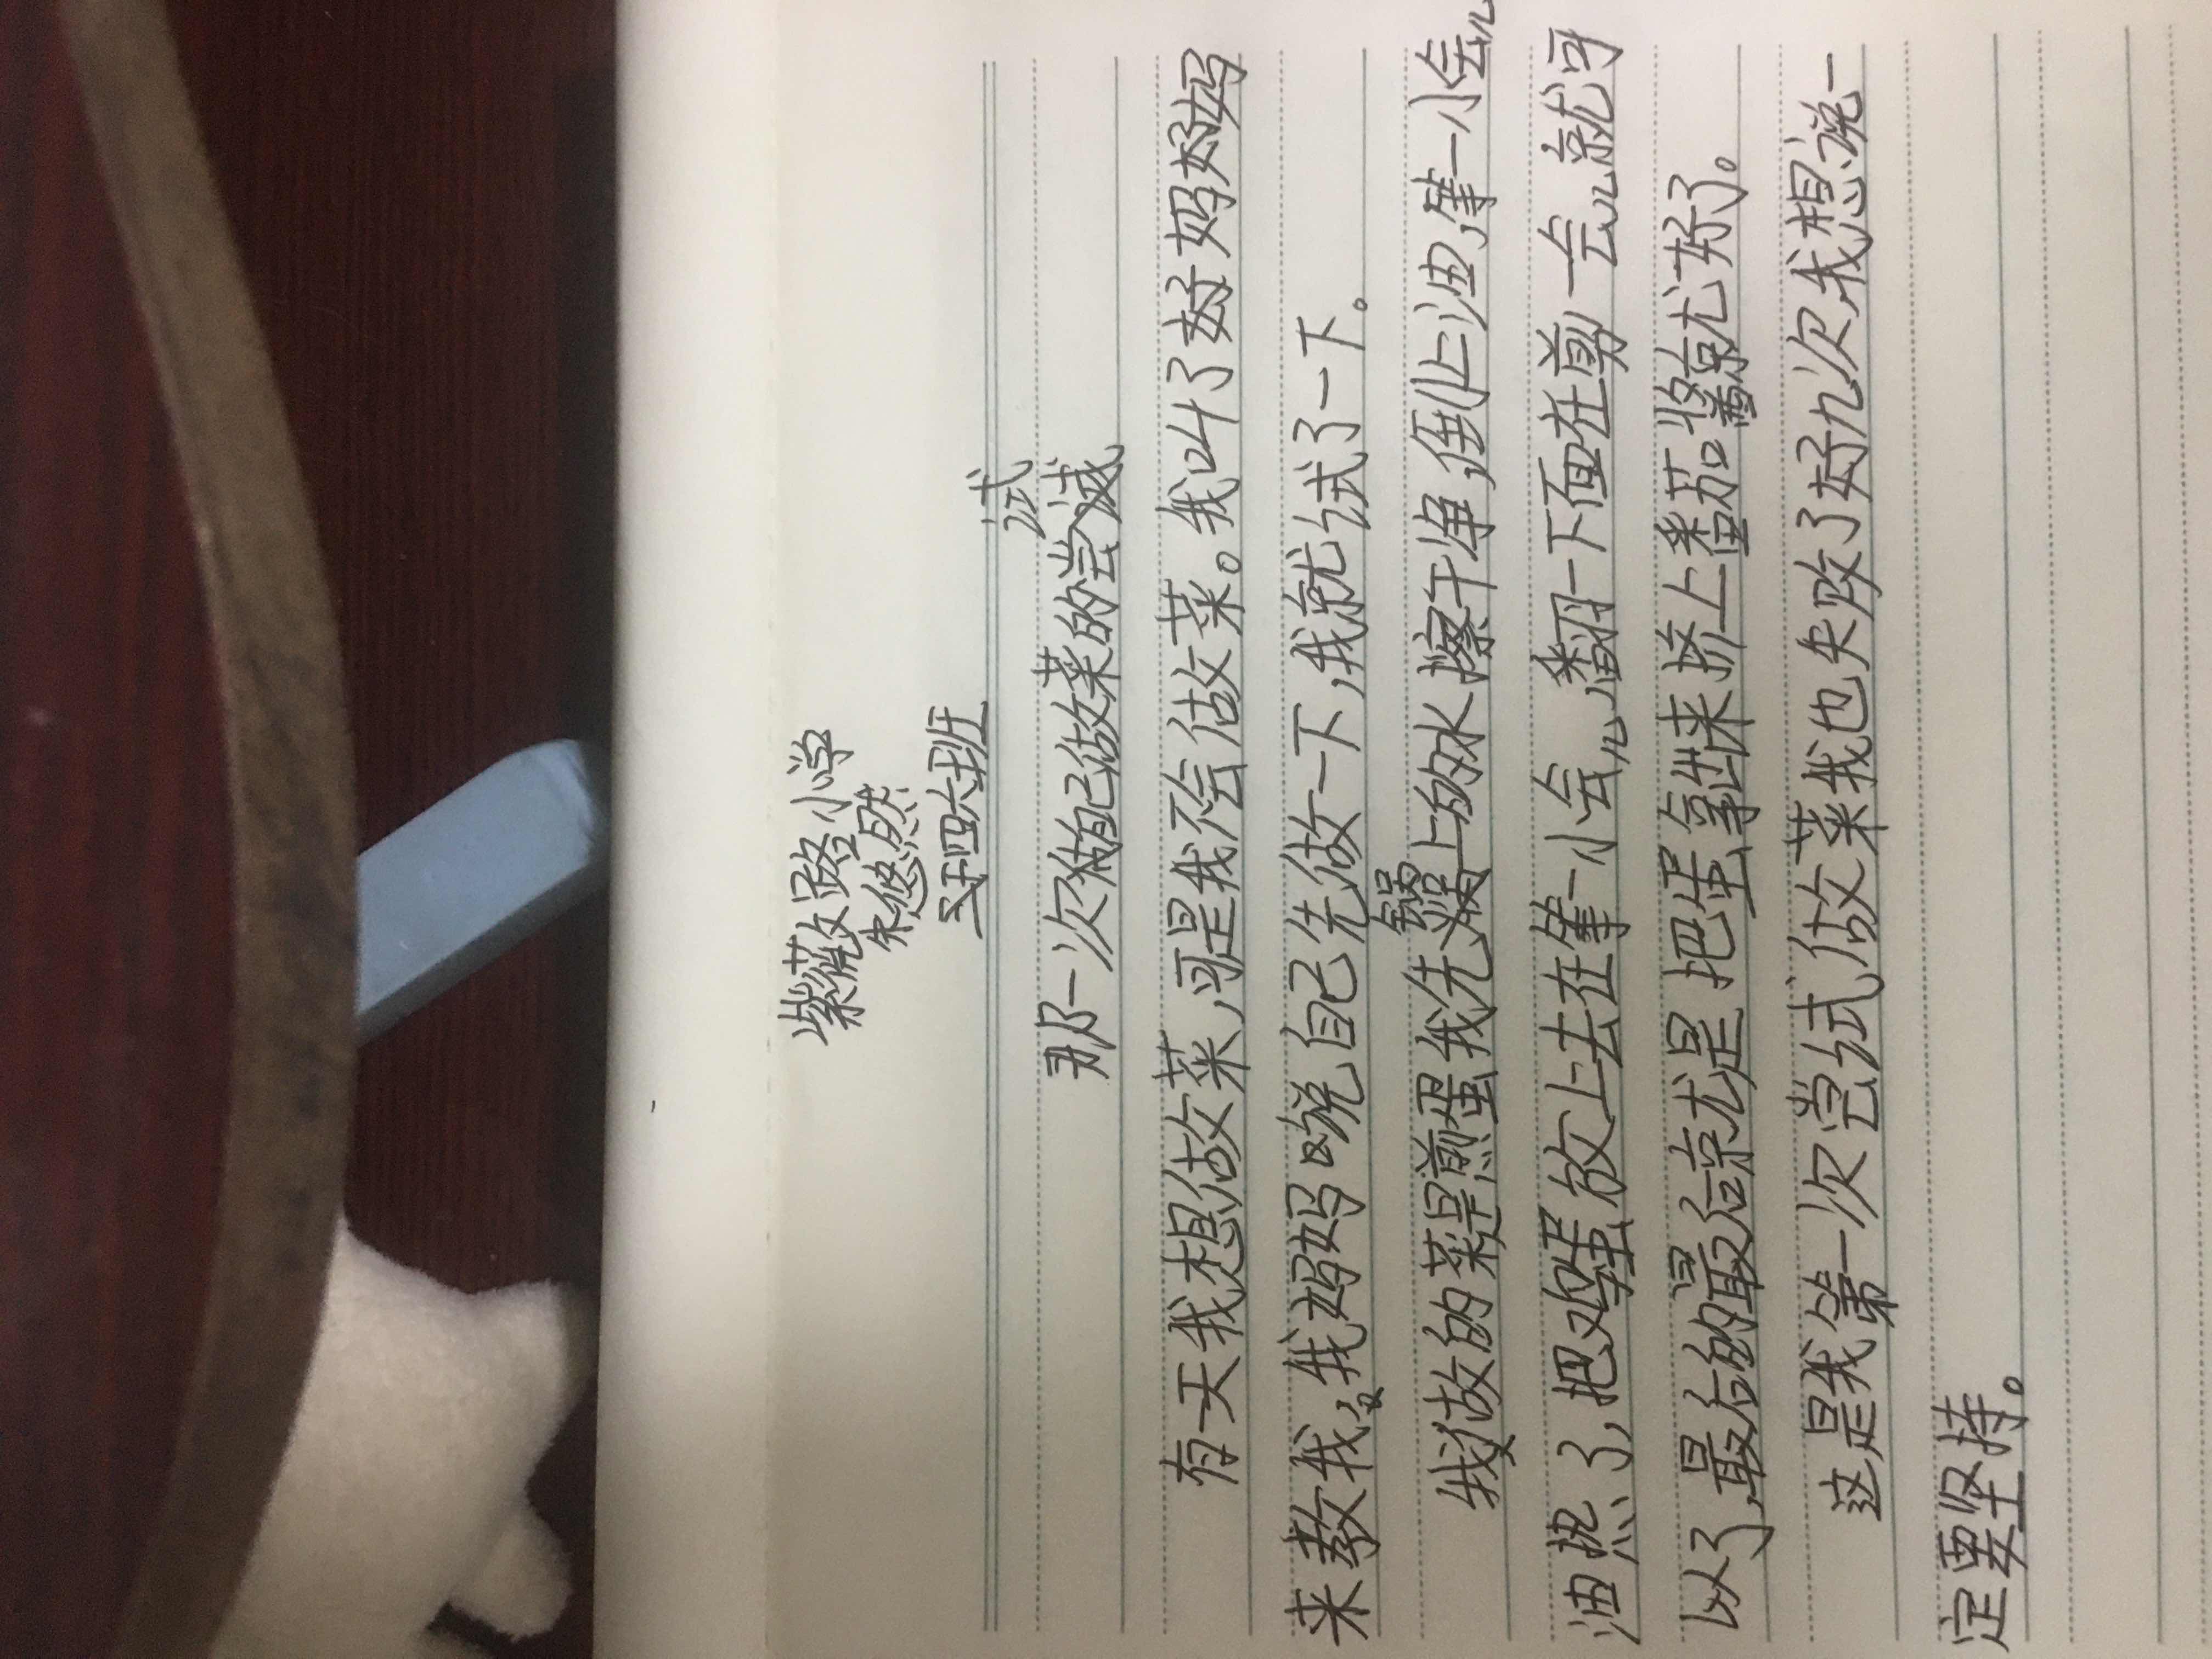 紫薇路小学
朱悠然
四六班
试
那一次做自己做菜的尝
有天我想做菜,可是我不会做菜。我叫了妈妈
来教我,我妈妈说自己先做一下,我就试了一下。
锅
我做的菜是煎蛋我先上的水擦干净,倒上油,等一小会儿
油热了,把鸡蛋放上去在等一小会儿,翻一下面在剪一会儿就可
以了,最后的最后就是把蛋拿出来挤上番茄酱就好了。
这是我第一次尝试做菜我也失败了好几次,我想说一
定要坚持。